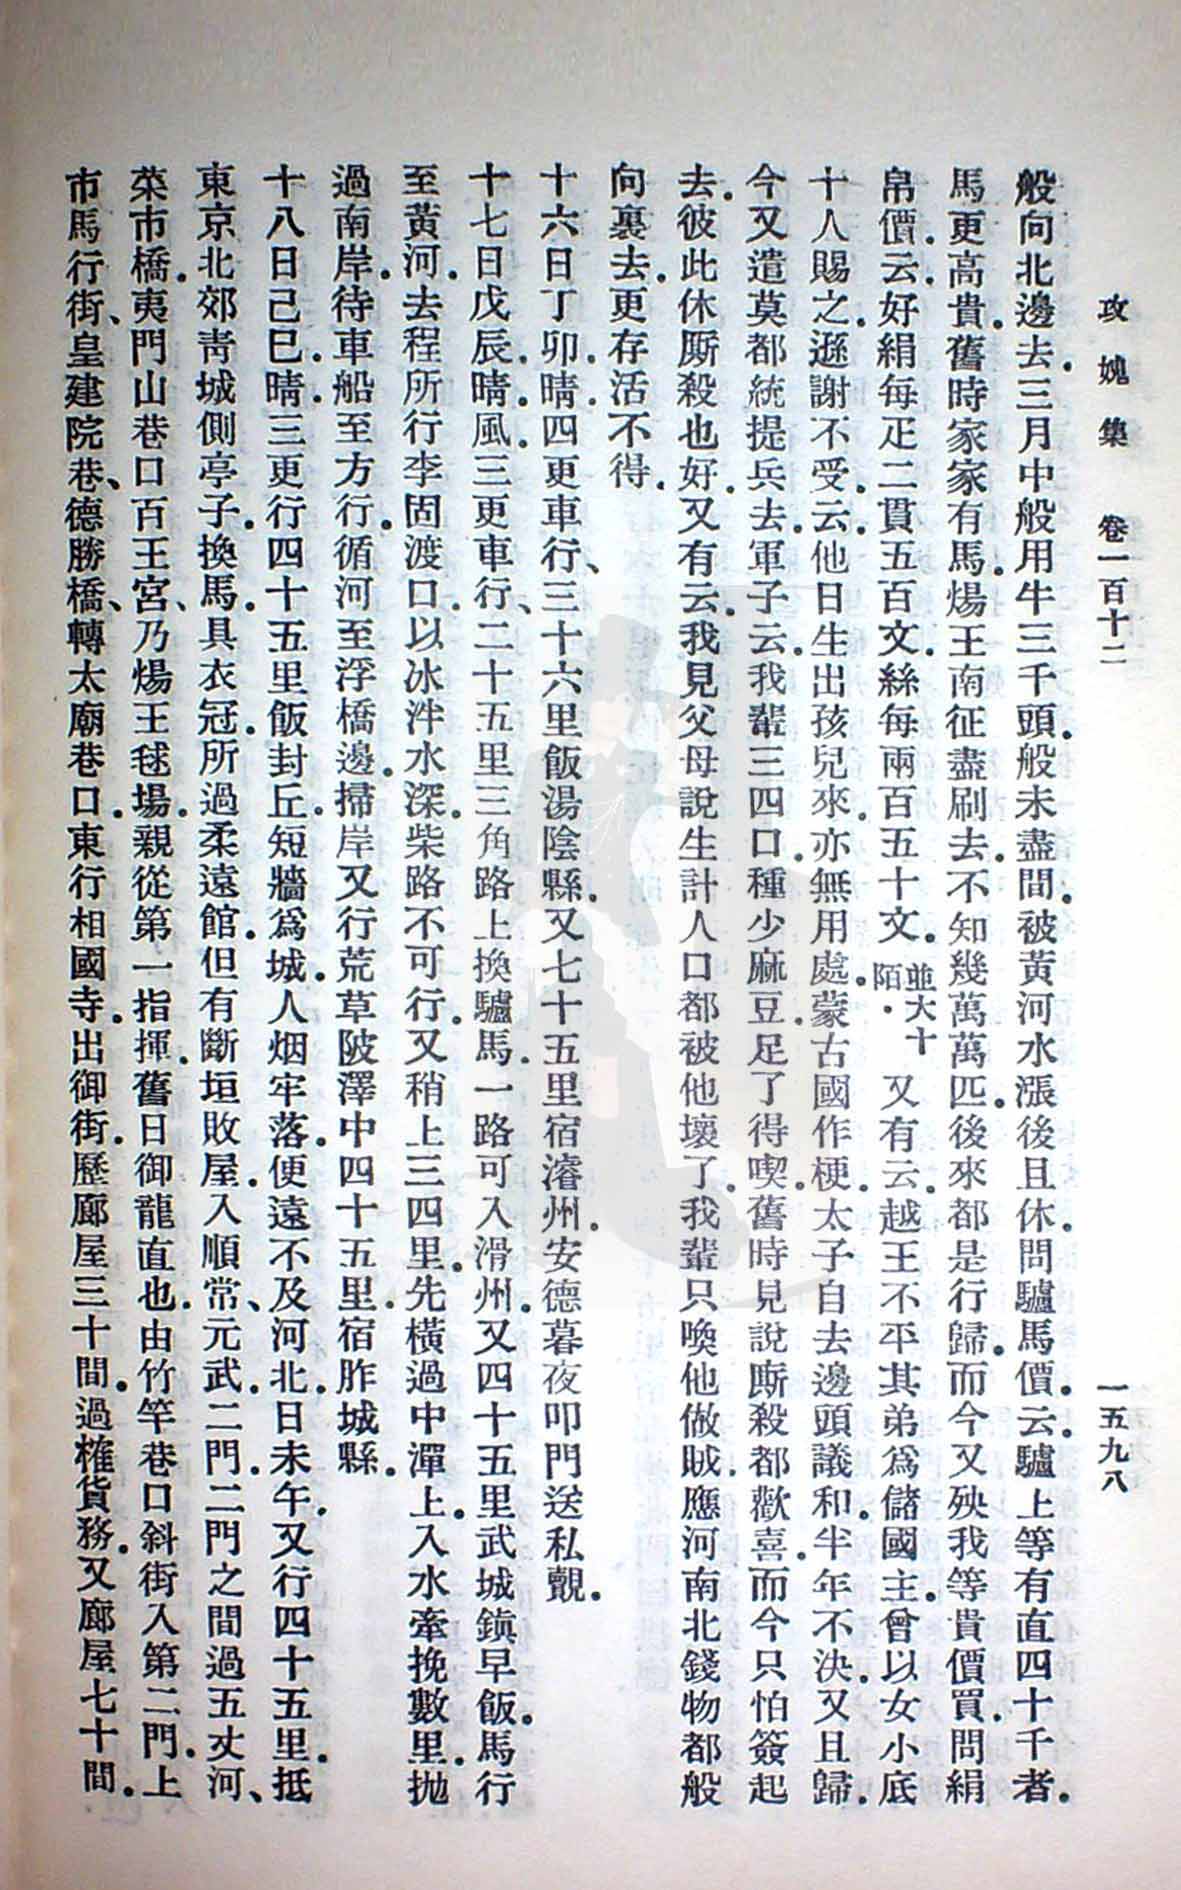 攻媿集　卷一百十二　一五九八
般向北邊去．三月中般用牛三千頭．般未盡間．被黃河水漲後且休．問驢馬價．云．驢上等有直四十千者．
馬更高貴．舊時家家有馬．煬王南征盡刷去．不知幾萬萬匹．後來都是行歸．而今又殃我等貴價買．問絹
帛價．云．好絹每疋二貫五百文．絲每兩百五十文．並大十陌．又有云．越王不平其弟爲儲國主．曾以女小底
十人賜之．遜謝不受．云．他日生出孩兒來．亦無用處．蒙古國作梗．太子自去邊頭議和．半年不決．又且歸．
今又遣莫都統提兵去．軍子云．我輩三四口．種少麻豆．足了得喫．舊時見說廝殺都歡喜．而今只怕簽起
去．彼此休廝殺也好．又有云．我見父母說生計人口都被他壞了．我輩只喚他做賊．應河南北錢物都般
向裏去．更存活不得．
十六日丁卯．晴．四更車行、三十六里飯湯陰縣．又七十五里宿濬州．安德暮夜叩門送私覿．
十七日戊辰．晴．風．三更車行、二十五里三角路上換驢馬．一路可入滑州．又四十五里武城鎮早飯．馬行
至黃河．去程所行李固渡口．以冰泮水深．柴路不可行．又稍上三四里．先橫過中潬上．入水牽挽數里．拋
過南岸．待車船至方行．循河至浮橋邊．掃岸又行荒草陂澤中四十五里．宿胙城縣．
十八日己巳．晴．三更行四十五里飯封丘．短牆爲城．人烟牢落．便遠不及河北．日未午．又行四十五里．抵
東京北郊青城側亭子．換馬．具衣冠．所過柔遠館．但有斷垣敗屋．入順常、元武．二門．二門之間過五丈河、
菜市橋．夷門山巷口百王宮、乃煬王毬場．親從第一指揮．舊日御龍直也．由竹竿巷口斜街入第二門．上
市馬行街、皇建院巷、德勝橋、轉太廟巷口．東行相國寺．出御街．歷廊屋三十間．過榷貨務．又廊屋七十間．